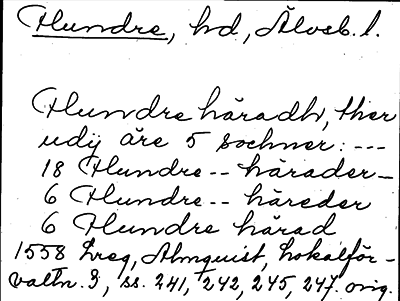 Hundre, hd, Älvsb. l.
Hundre häradh, ther
udij äre 5 sochner: ---
18 Hundre -- härader -
6 Hundre -- häreder
6 Hundre härad
1558 Lreg, Almquist, Lokalför-
valtn. 3, ss. 241, 242, 245, 247. orig.